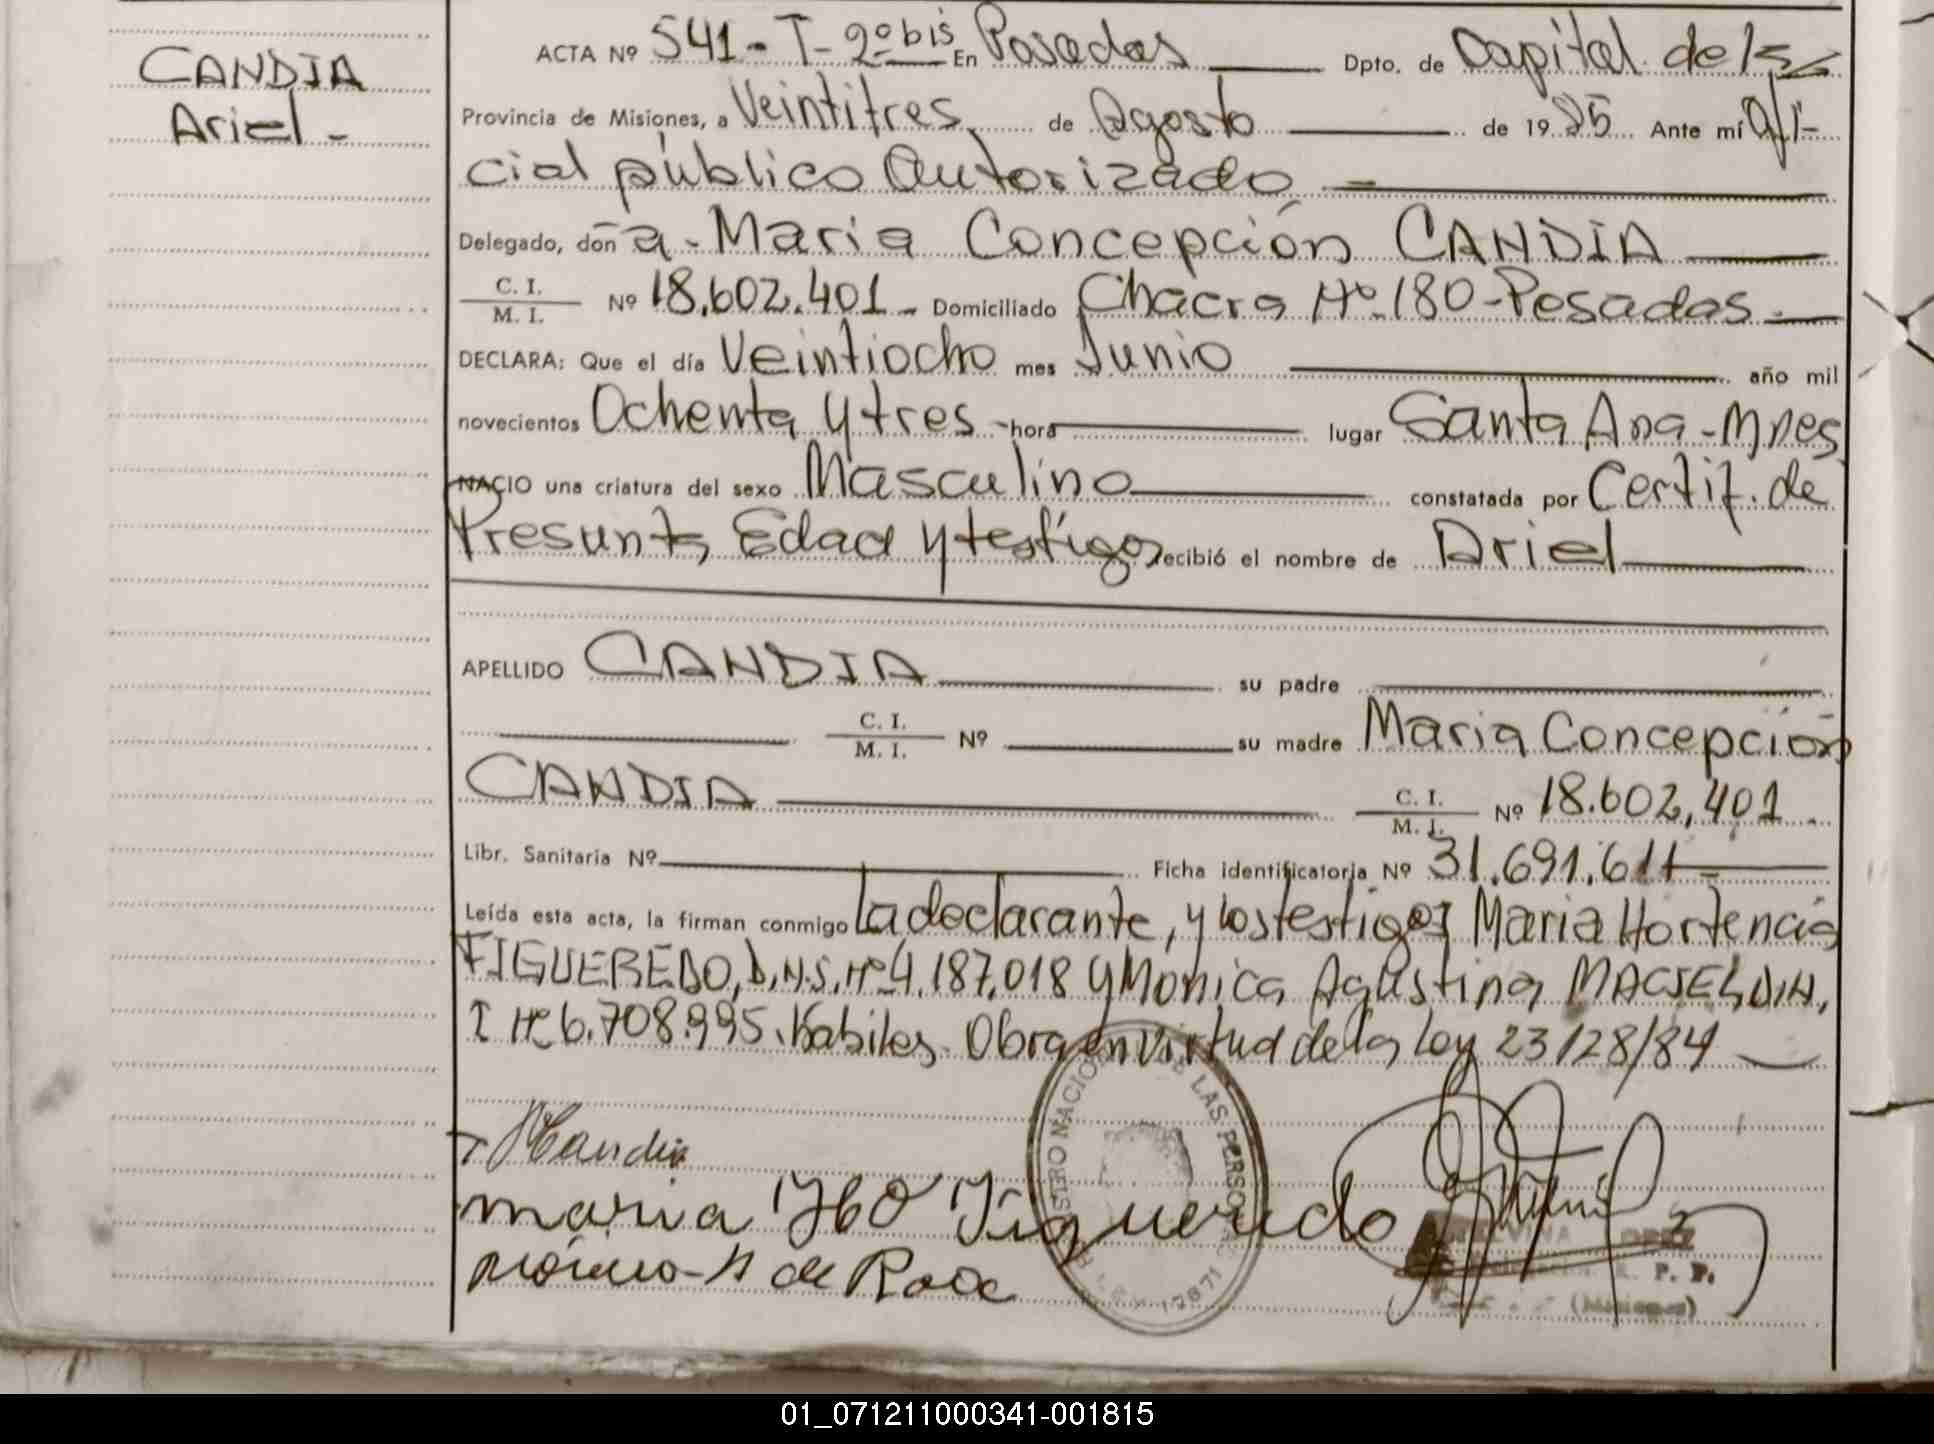 CANDIA
Ariel -
ACTA Nº 541 - T - 2º bis En Posadas Dpto. de Capital de la
Provincia de Misiones, a Veintitres de Agosto de 19 85 Ante mí Ofi-
cial público Autorizado -
Delegado, don a - Maria Concepción CANDIA
C. I. / M. I. Nº 18.602.401 - Domiciliado Chacra Nº 180 - Posadas -
DECLARA: Que el día Veintiocho mes Junio año mil
novecientos Ochenta y tres - hora lugar Santa Ana - Mnes
NACIO una criatura del sexo Masculino constatada por Certif. de
Presunta Edad y testigos recibió el nombre de Ariel
APELLIDO CANDIA su padre
C. I. / M. I. Nº su madre Maria Concepción
CANDIA C. I. / M. I. Nº 18.602.401
Libr. Sanitaria Nº Ficha identificatoria Nº 31.691.611 -
Leída esta acta, la firman conmigo la declarante, y los testigos Maria Hortencia
FIGUEREDO, D.N.I. Nº 4.187.018 y Monica Agustina MACIEL, D.N.
I Nº 6.708.995. habiles. Obra en virtud de la Ley 23128/84
MCandia
maria Figueredo
monica A de
REGISTRO NACIONAL DE LAS PERSONAS
LEY 12871
LOPEZ
R. P. P.
(Misiones)
01_071211000341-001815